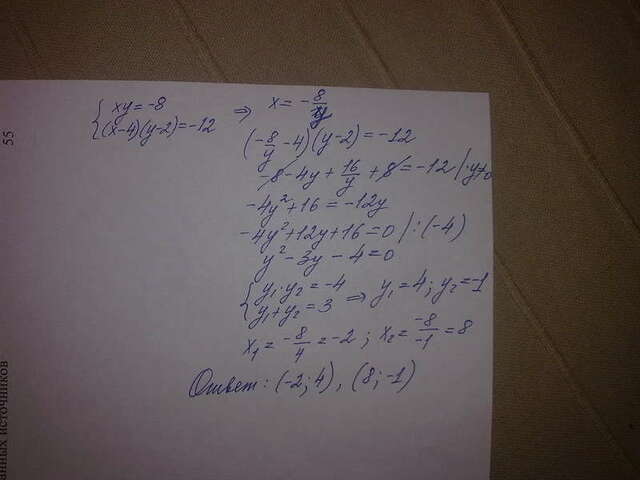 { xy = -8
(x-4)(y-2) = -12 ⇒ x = -8/y
(-8/y - 4)(y-2) = -12
-8 - 4y + 16/y + 8 = -12 | ·y≠0
-4y² + 16 = -12y
-4y² + 12y + 16 = 0 | : (-4)
y² - 3y - 4 = 0
{ y₁·y₂ = -4
y₁ + y₂ = 3 ⇒ y₁ = 4; y₂ = -1
x₁ = -8/4 = -2; x₂ = -8/-1 = 8
Ответ: (-2; 4), (8; -1)
55
источников